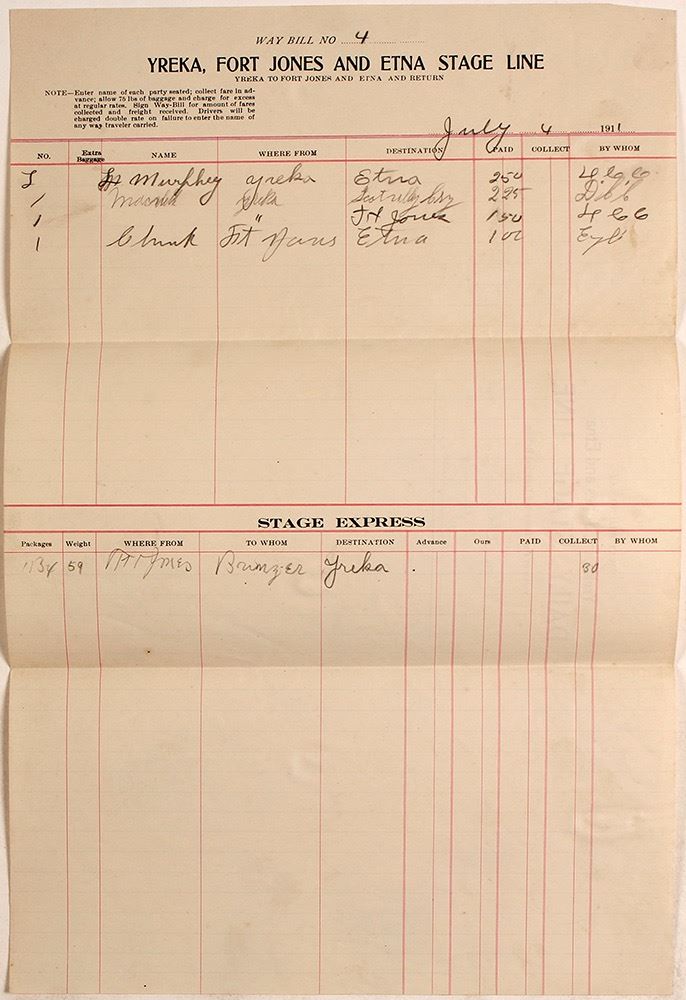 WAY BILL NO 4
YREKA, FORT JONES AND ETNA STAGE LINE
YREKA TO FORT JONES AND ETNA AND RETURN
NOTE—Enter name of each party seated; collect fare in ad-
vance; allow 75 lbs of baggage and charge for excess
at regular rates. Sign Way-Bill for amount of fares
collected and freight received. Drivers will be
charged double rate on failure to enter the name of
any way traveler carried.
July 4 1911
NO. Extra Baggage NAME WHERE FROM DESTINATION PAID COLLECT BY WHOM
Murphey Yreka Etna 250
1 225
1 " Ft Jones 150
1 Ft Jones Etna 100
STAGE EXPRESS
Packages Weight WHERE FROM TO WHOM DESTINATION Advance Ours PAID COLLECT BY WHOM
59 Ft Jones Yreka 30